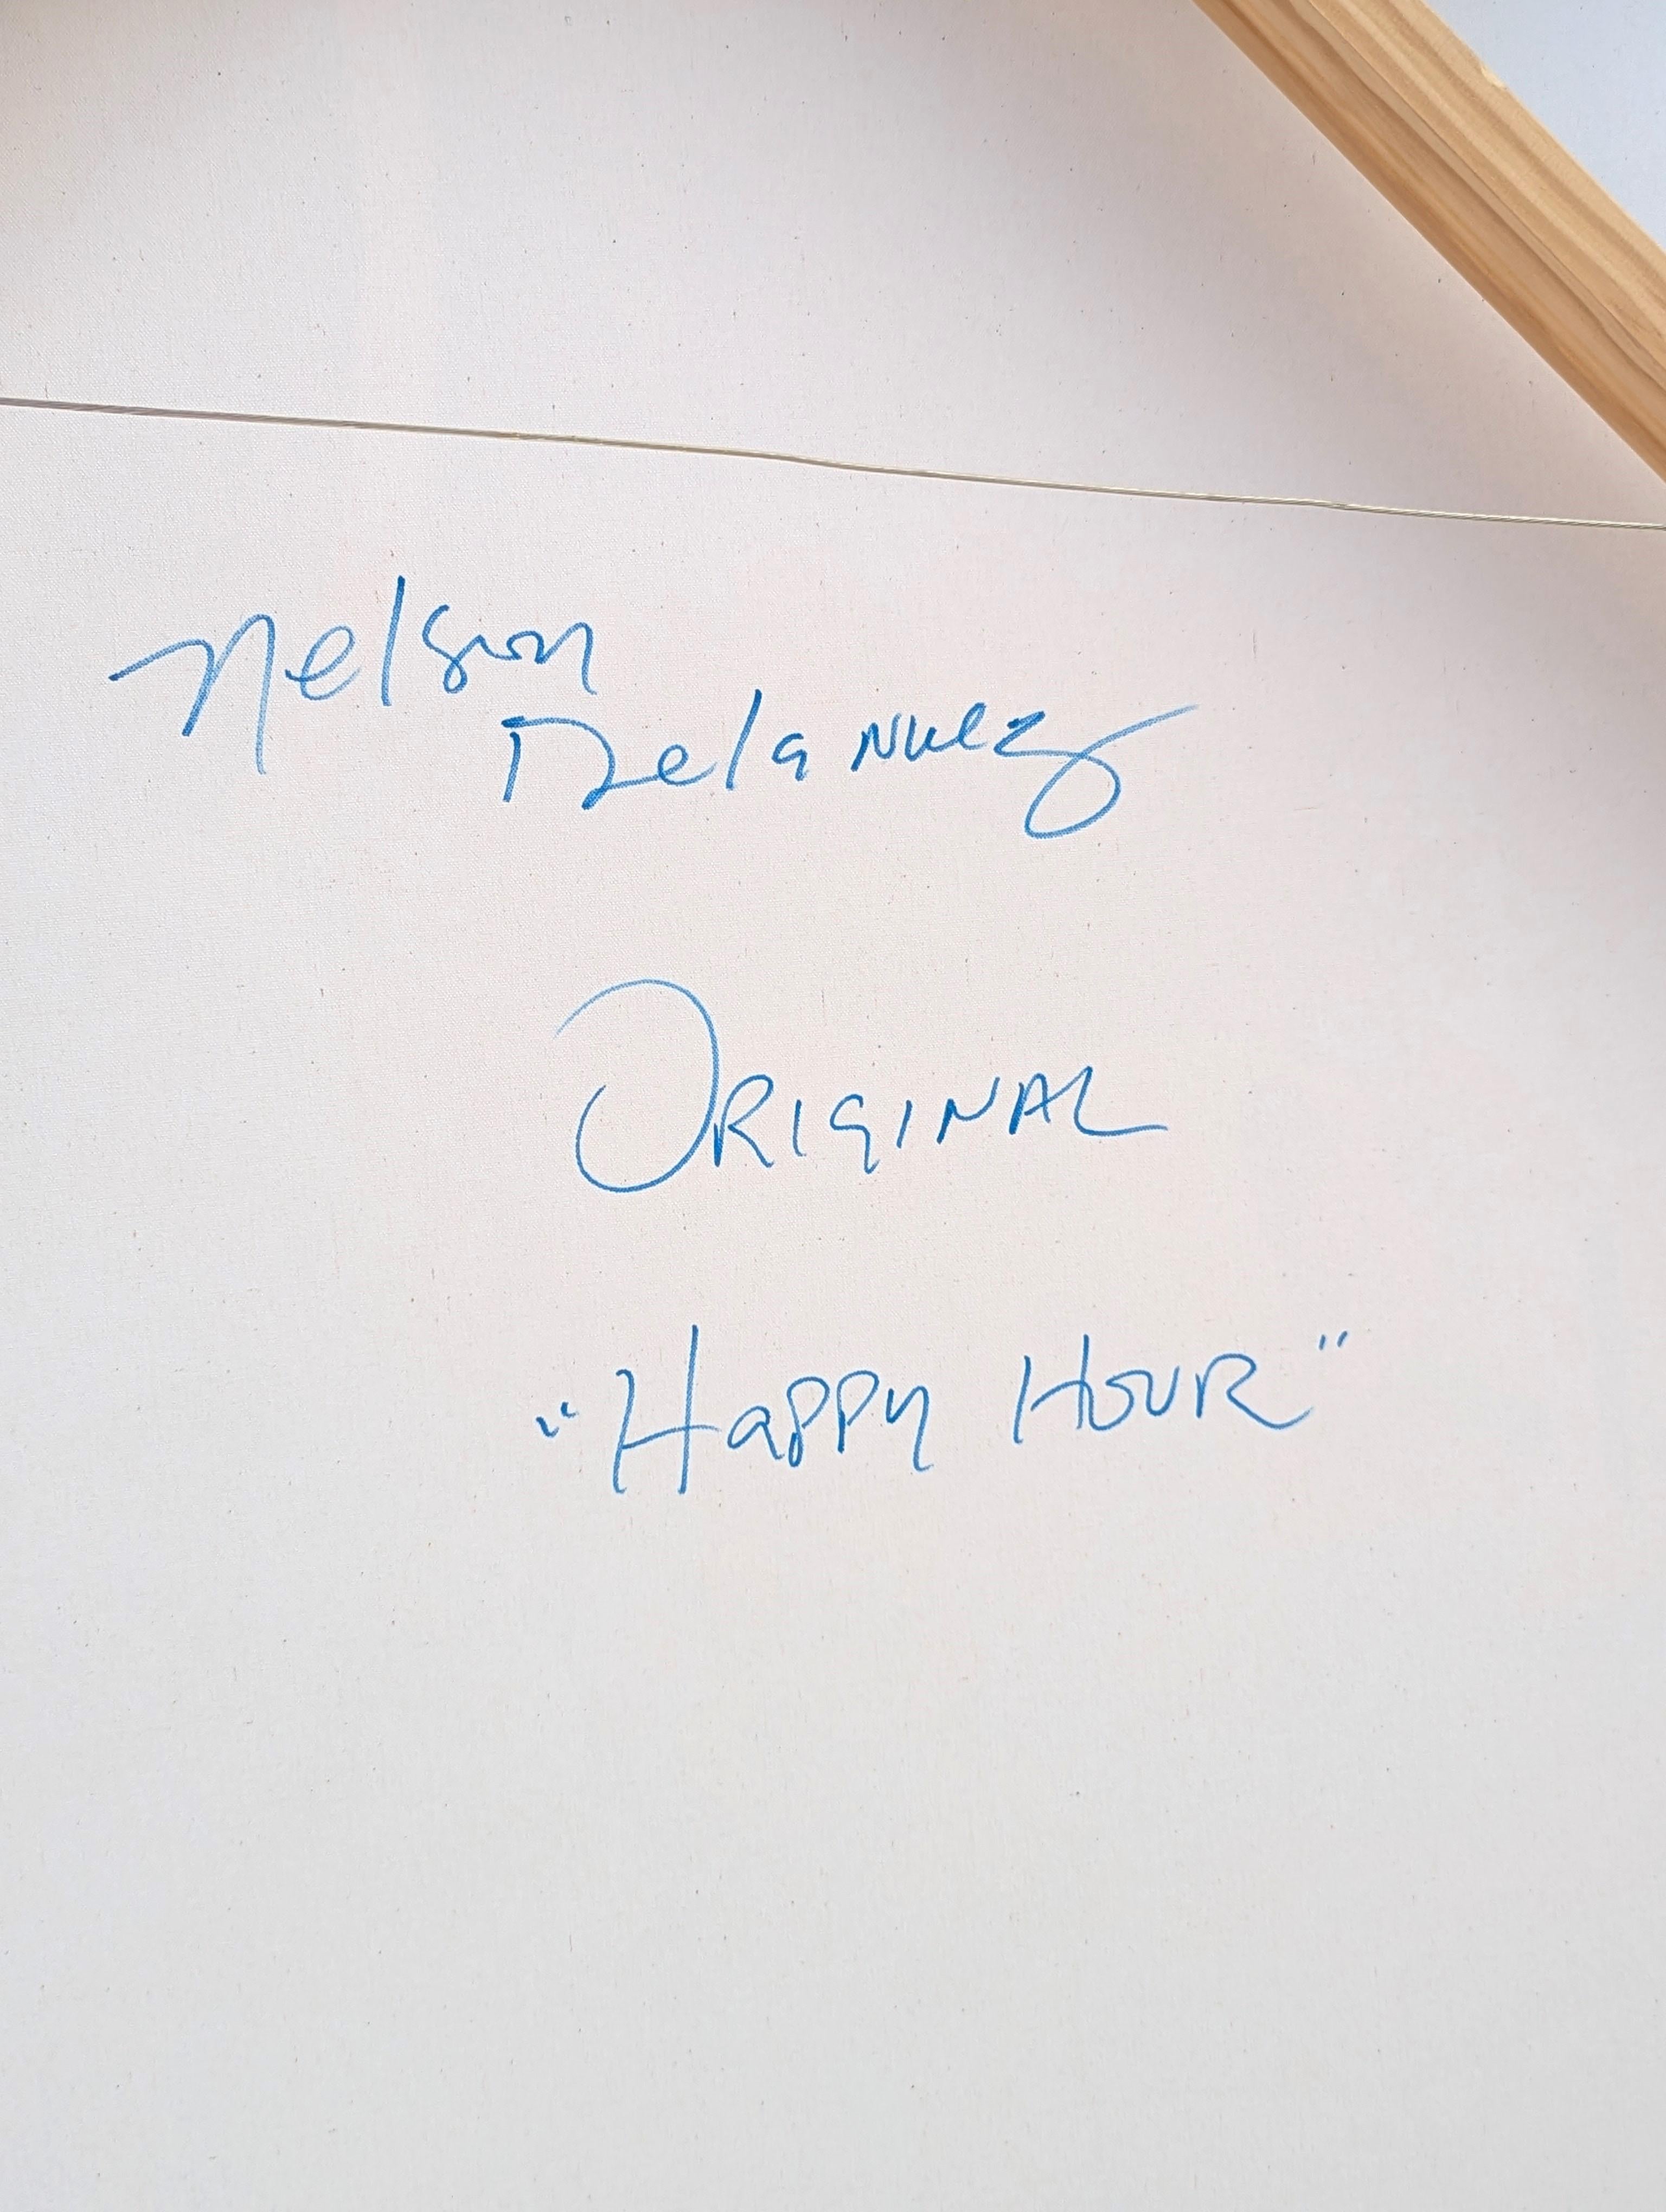 Nelson
De la Nuez
ORIGINAL
"Happy HOUR"